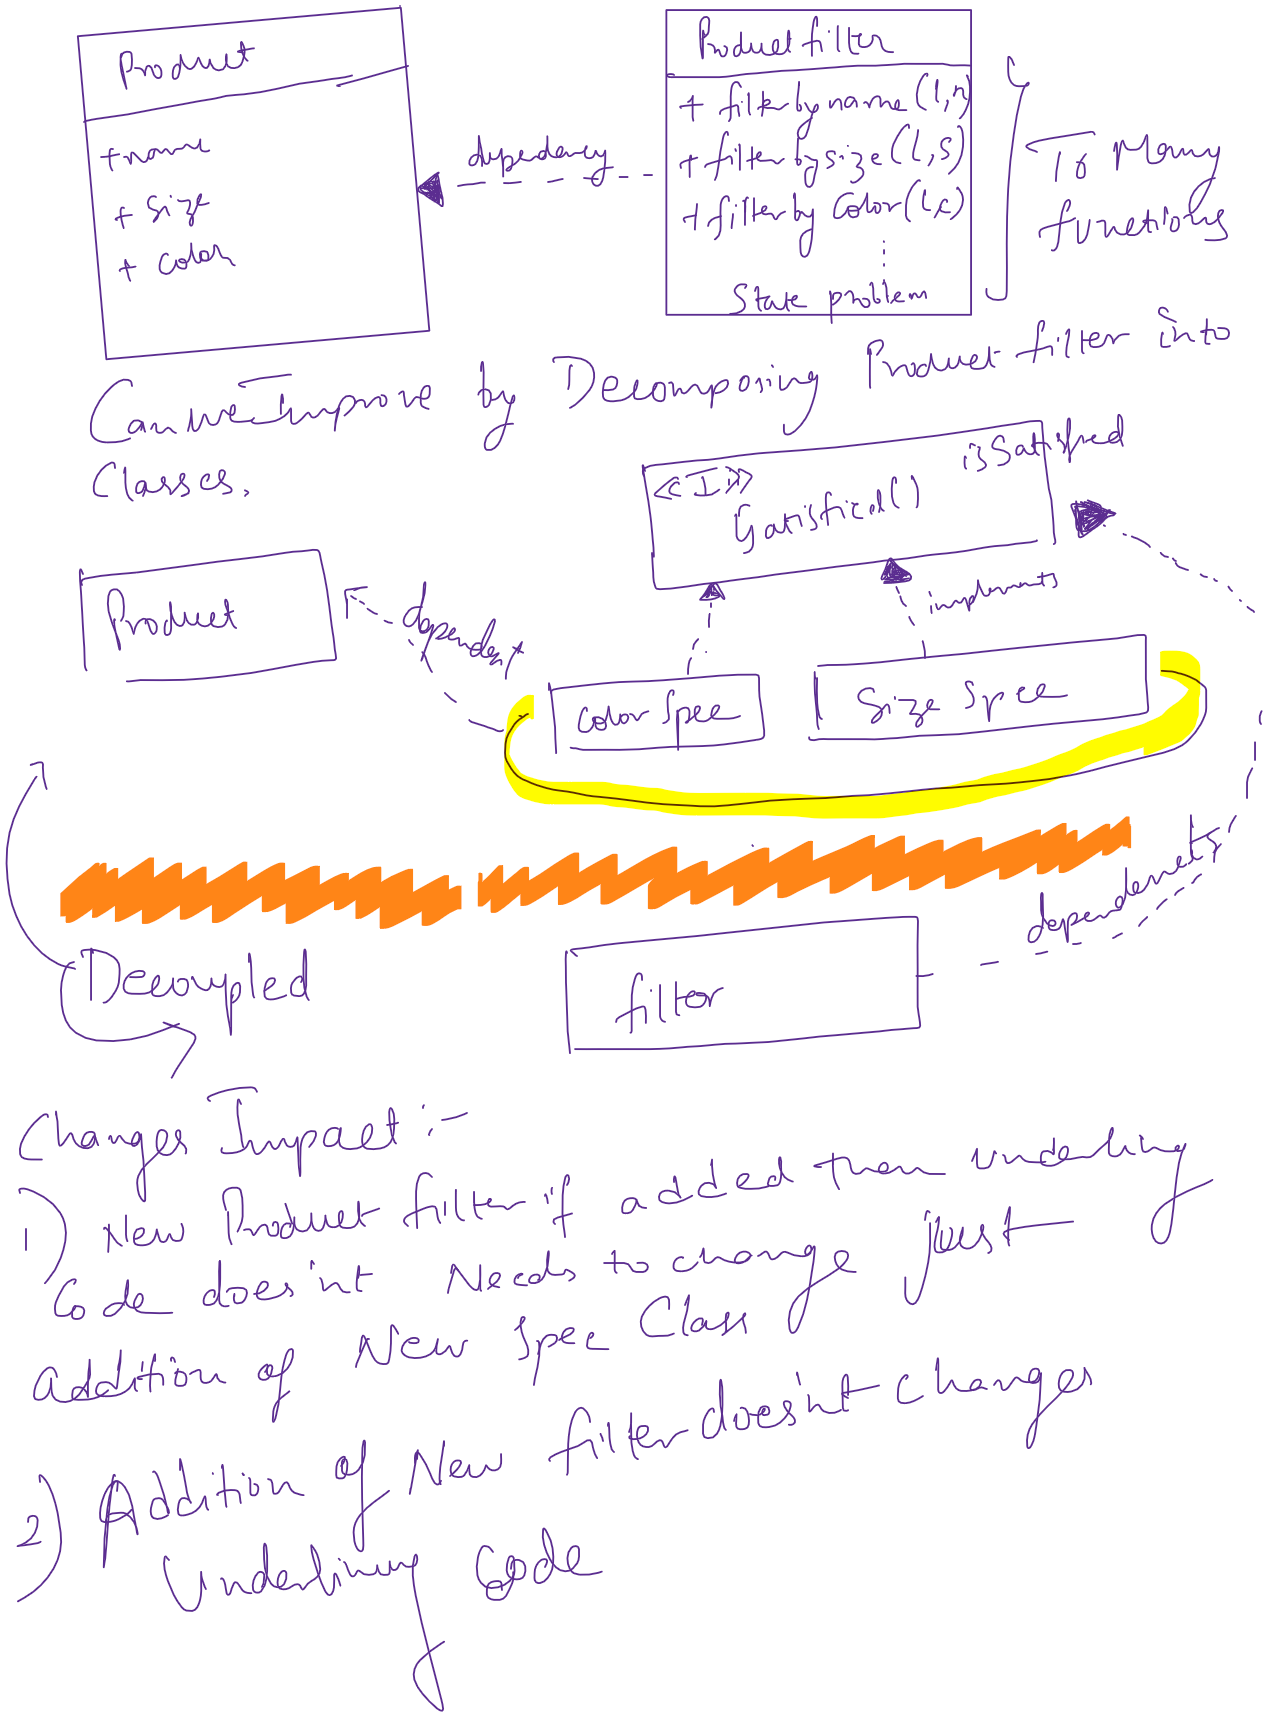 Product
+name
+ Size
+ Color
dependency
Product filter
+ filter by name (l,n)
+ filter by size (l,S)
+ filter by Color (l,c)
State problem
To Many
functions
Can we Improve by Decomposing Product filter into
Classes.
<<I>>
isSatisfied
Satisfied()
Product
dependent
implements
Color Spec
Size Spec
dependenets
Decoupled
filter
Changes Impact :-
1) New Product filter if added then underling
Code does'nt Needs to change just
addition of New Spec Class
2) Addition of New filter does'nt changes
Underlining Code